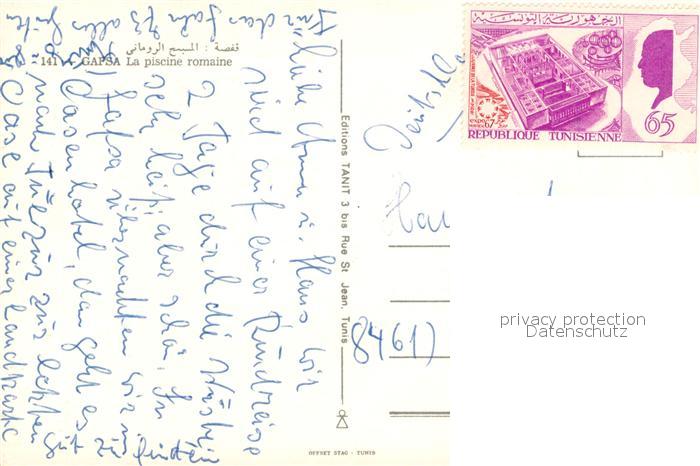 قفصة : المسبح الروماني
141 - GAFSA La piscine romaine
Editions TANIT 3 bis Rue St Jean, Tunis
OFFSET STAG - TUNIS
الجمهورية التونسية
EXPO
67
REPUBLIQUE TUNISIENNE
65
8461)
privacy protection
Datenschutz
Liebe u. Hans wir
sind auf einer Rundreise
2 Tage durch die Wüste
sehr heiß, aber schön. In
Gafsa übernachten wir im
Oasenhotel, dan geht es
nach zur letzten
Oase auf einer Landkarte
zu finden
gut
das Jahr 73 alles Gute